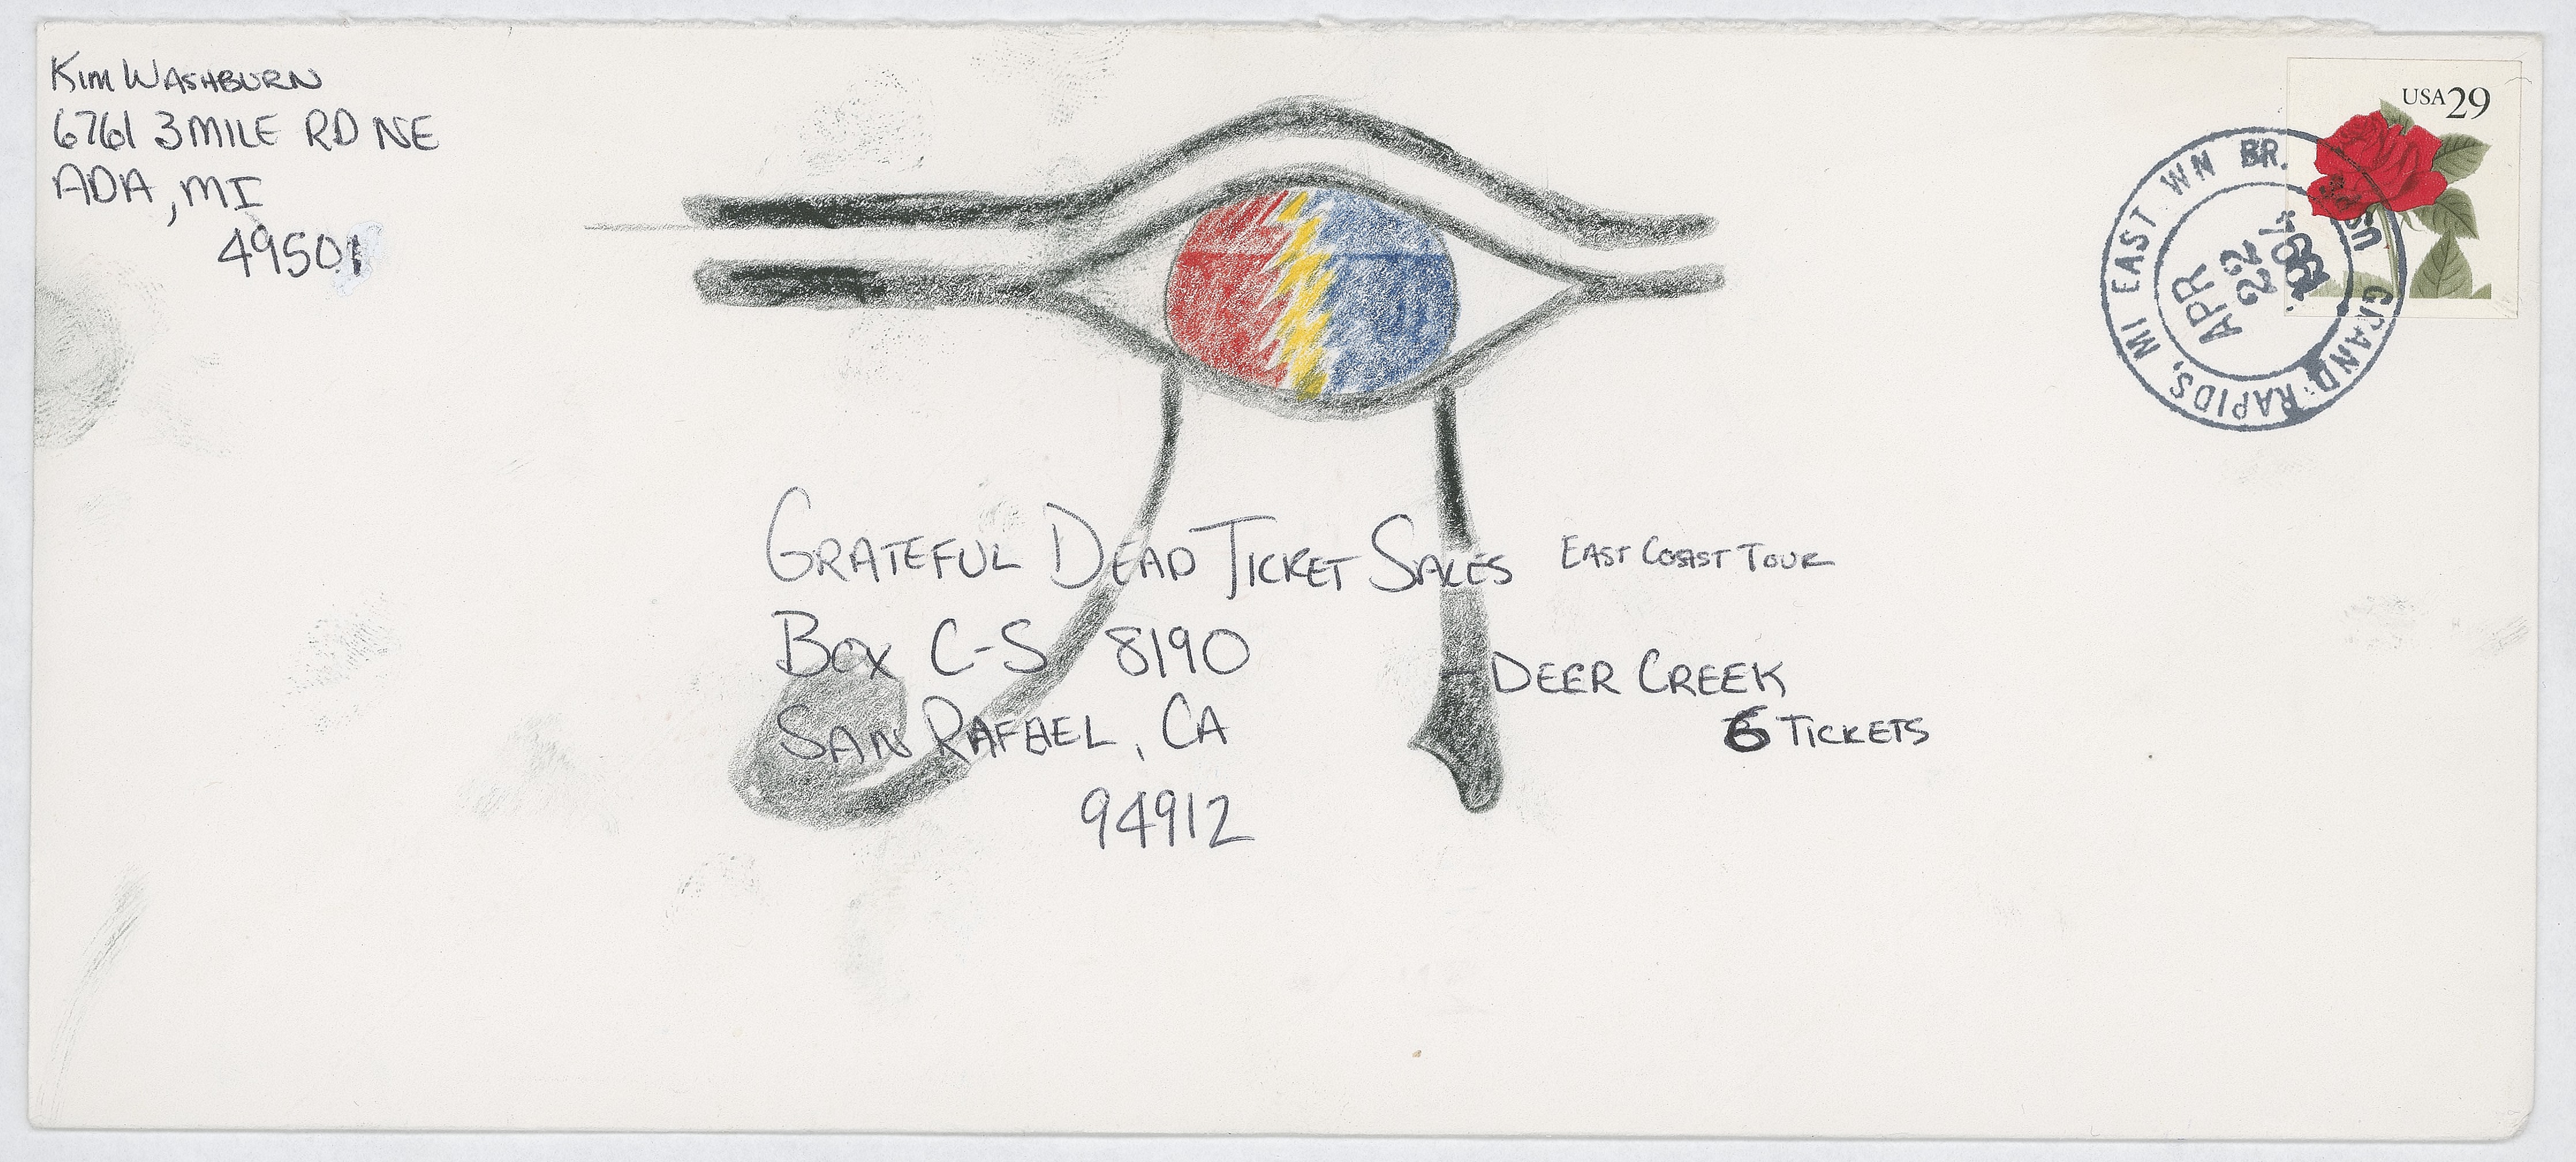 Kim Washburn
6761 3 Mile Rd NE
Ada, MI
49501
USA 29
Grand Rapids, MI East Wn Br. USPS
APR
22
1994
Grateful Dead Ticket Sales East Coast Tour
Box C-S 8190
San Rafael, CA
94912
-Deer Creek
6 Tickets